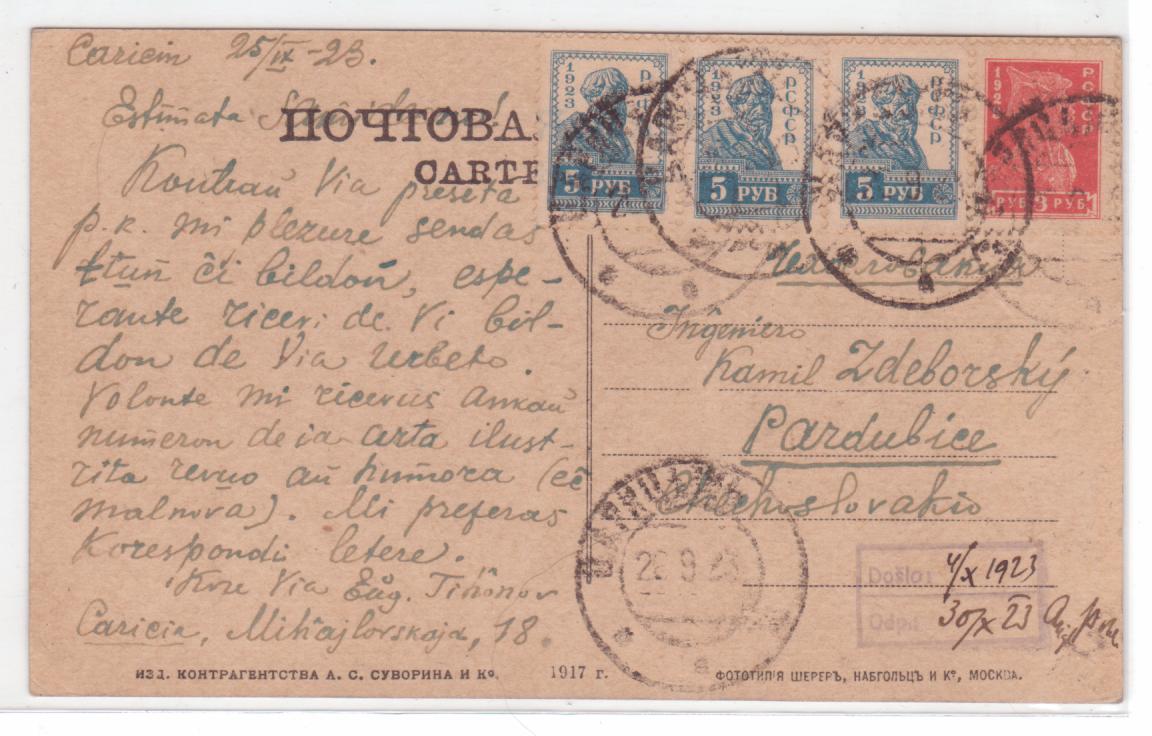 Caricin 25/IX-23.
Estimata
ПОЧТОВА
CARTE
Kontraŭ Via preseta
p.k. mi plezure sendas
tiun ĉi bildon, espe-
rante ricevi de Vi bil-
don de Via urbeto.
Volonte mi ricevus ankaŭ
numeron de ia arta ilust-
rita revuo aŭ humora (eĉ
malnova). Mi preferas
korespondi letere.
Kore Via Eŭg. Tiĥonov
Caricin, Miĥajlovskaja, 18.
1923 РСФСР 5 РУБ
1923 РСФСР 5 РУБ
1923 РСФСР 5 РУБ
1923 РСФСР РУБ 3 РУБ
Inĝeniero
Kamil Zdeborský
Pardubice
Ĉeĥoslovakio
ЦАРИЦЫН
26 9 23
Došlo: 4/X 1923
Odp.: 30/X 23
ИЗД. КОНТРАГЕНТСТВА А. С. СУВОРИНА И Кº. 1917 г. ФОТОТИПІЯ ШЕРЕРЪ, НАБГОЛЬЦЪ И Кº, МОСКВА.